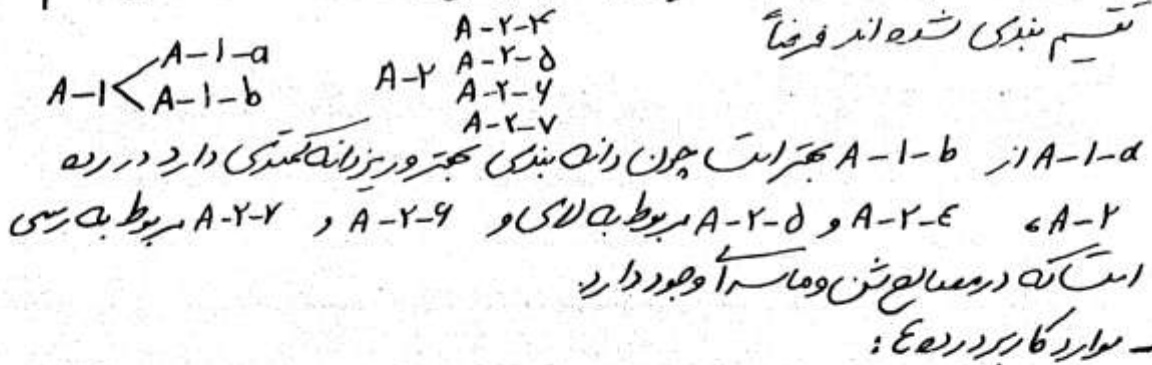 تقسیم بندی شده اند فرضاً
A-1 A-1-a
A-1-b
A-۲ A-۲-۴
A-۲-۵
A-۲-۶
A-۲-۷
A-1-a از A-1-b بهتر است چون دانه بندی بهتر و ریزدانه کمتری دارد در رده
A-۲، A-۲-٤ و A-۲-۵ مربوط به لای و A-۲-۶ و A-۲-۷ مربوط به رسی
است که در مصالح شن و ماسه آ وجود دارد.
- موارد کاربرد رده ٤ :